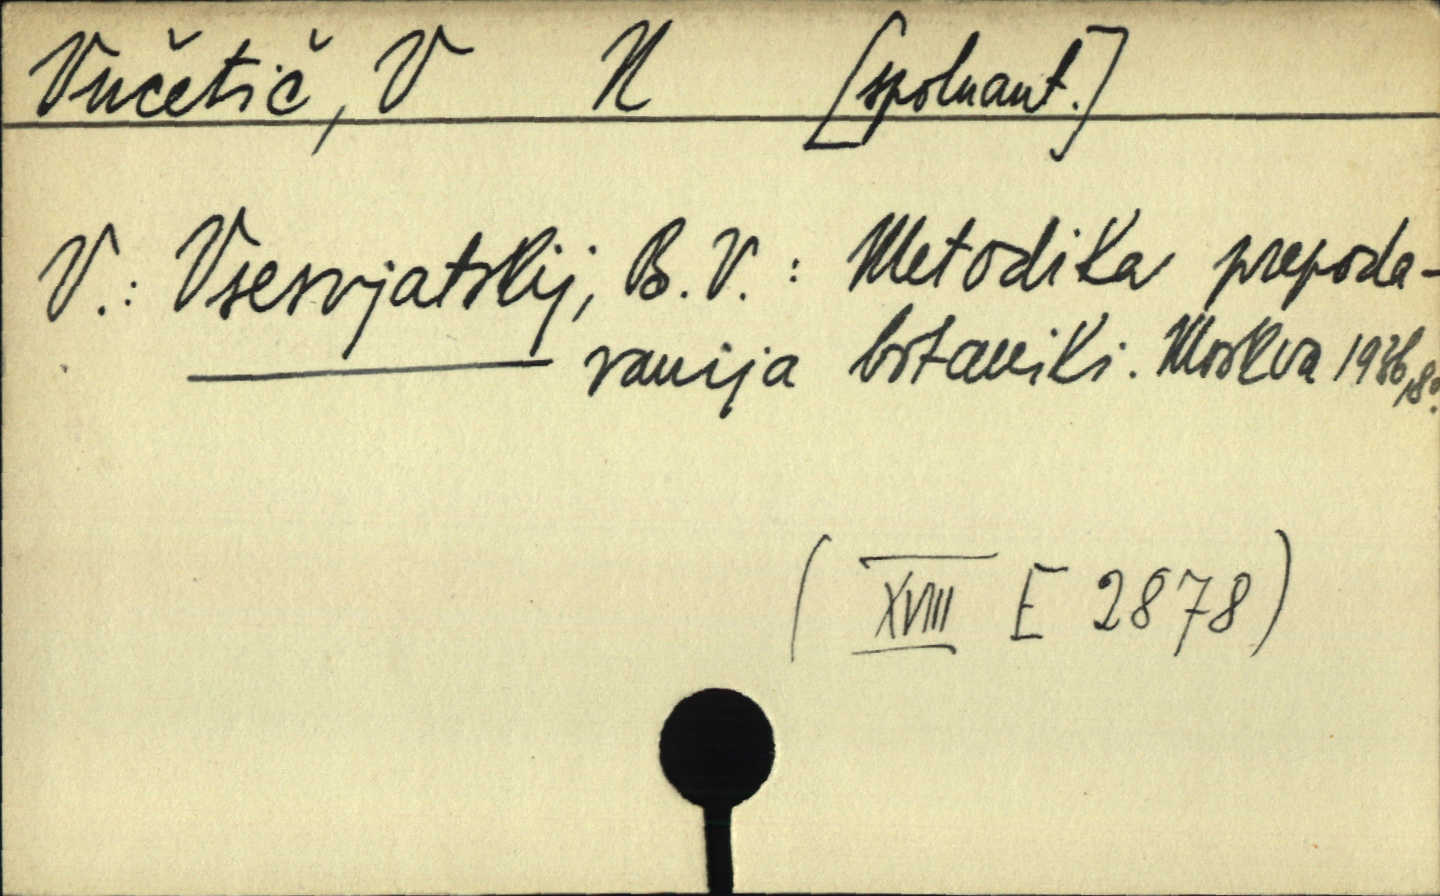 Vučetič, V N [spoluaut.]
V.: Vsesvjatskij, B. V.: Metodika prepoda-
vanija botaniki. Moskva 1936, 8°.
(XVIII E 2878)